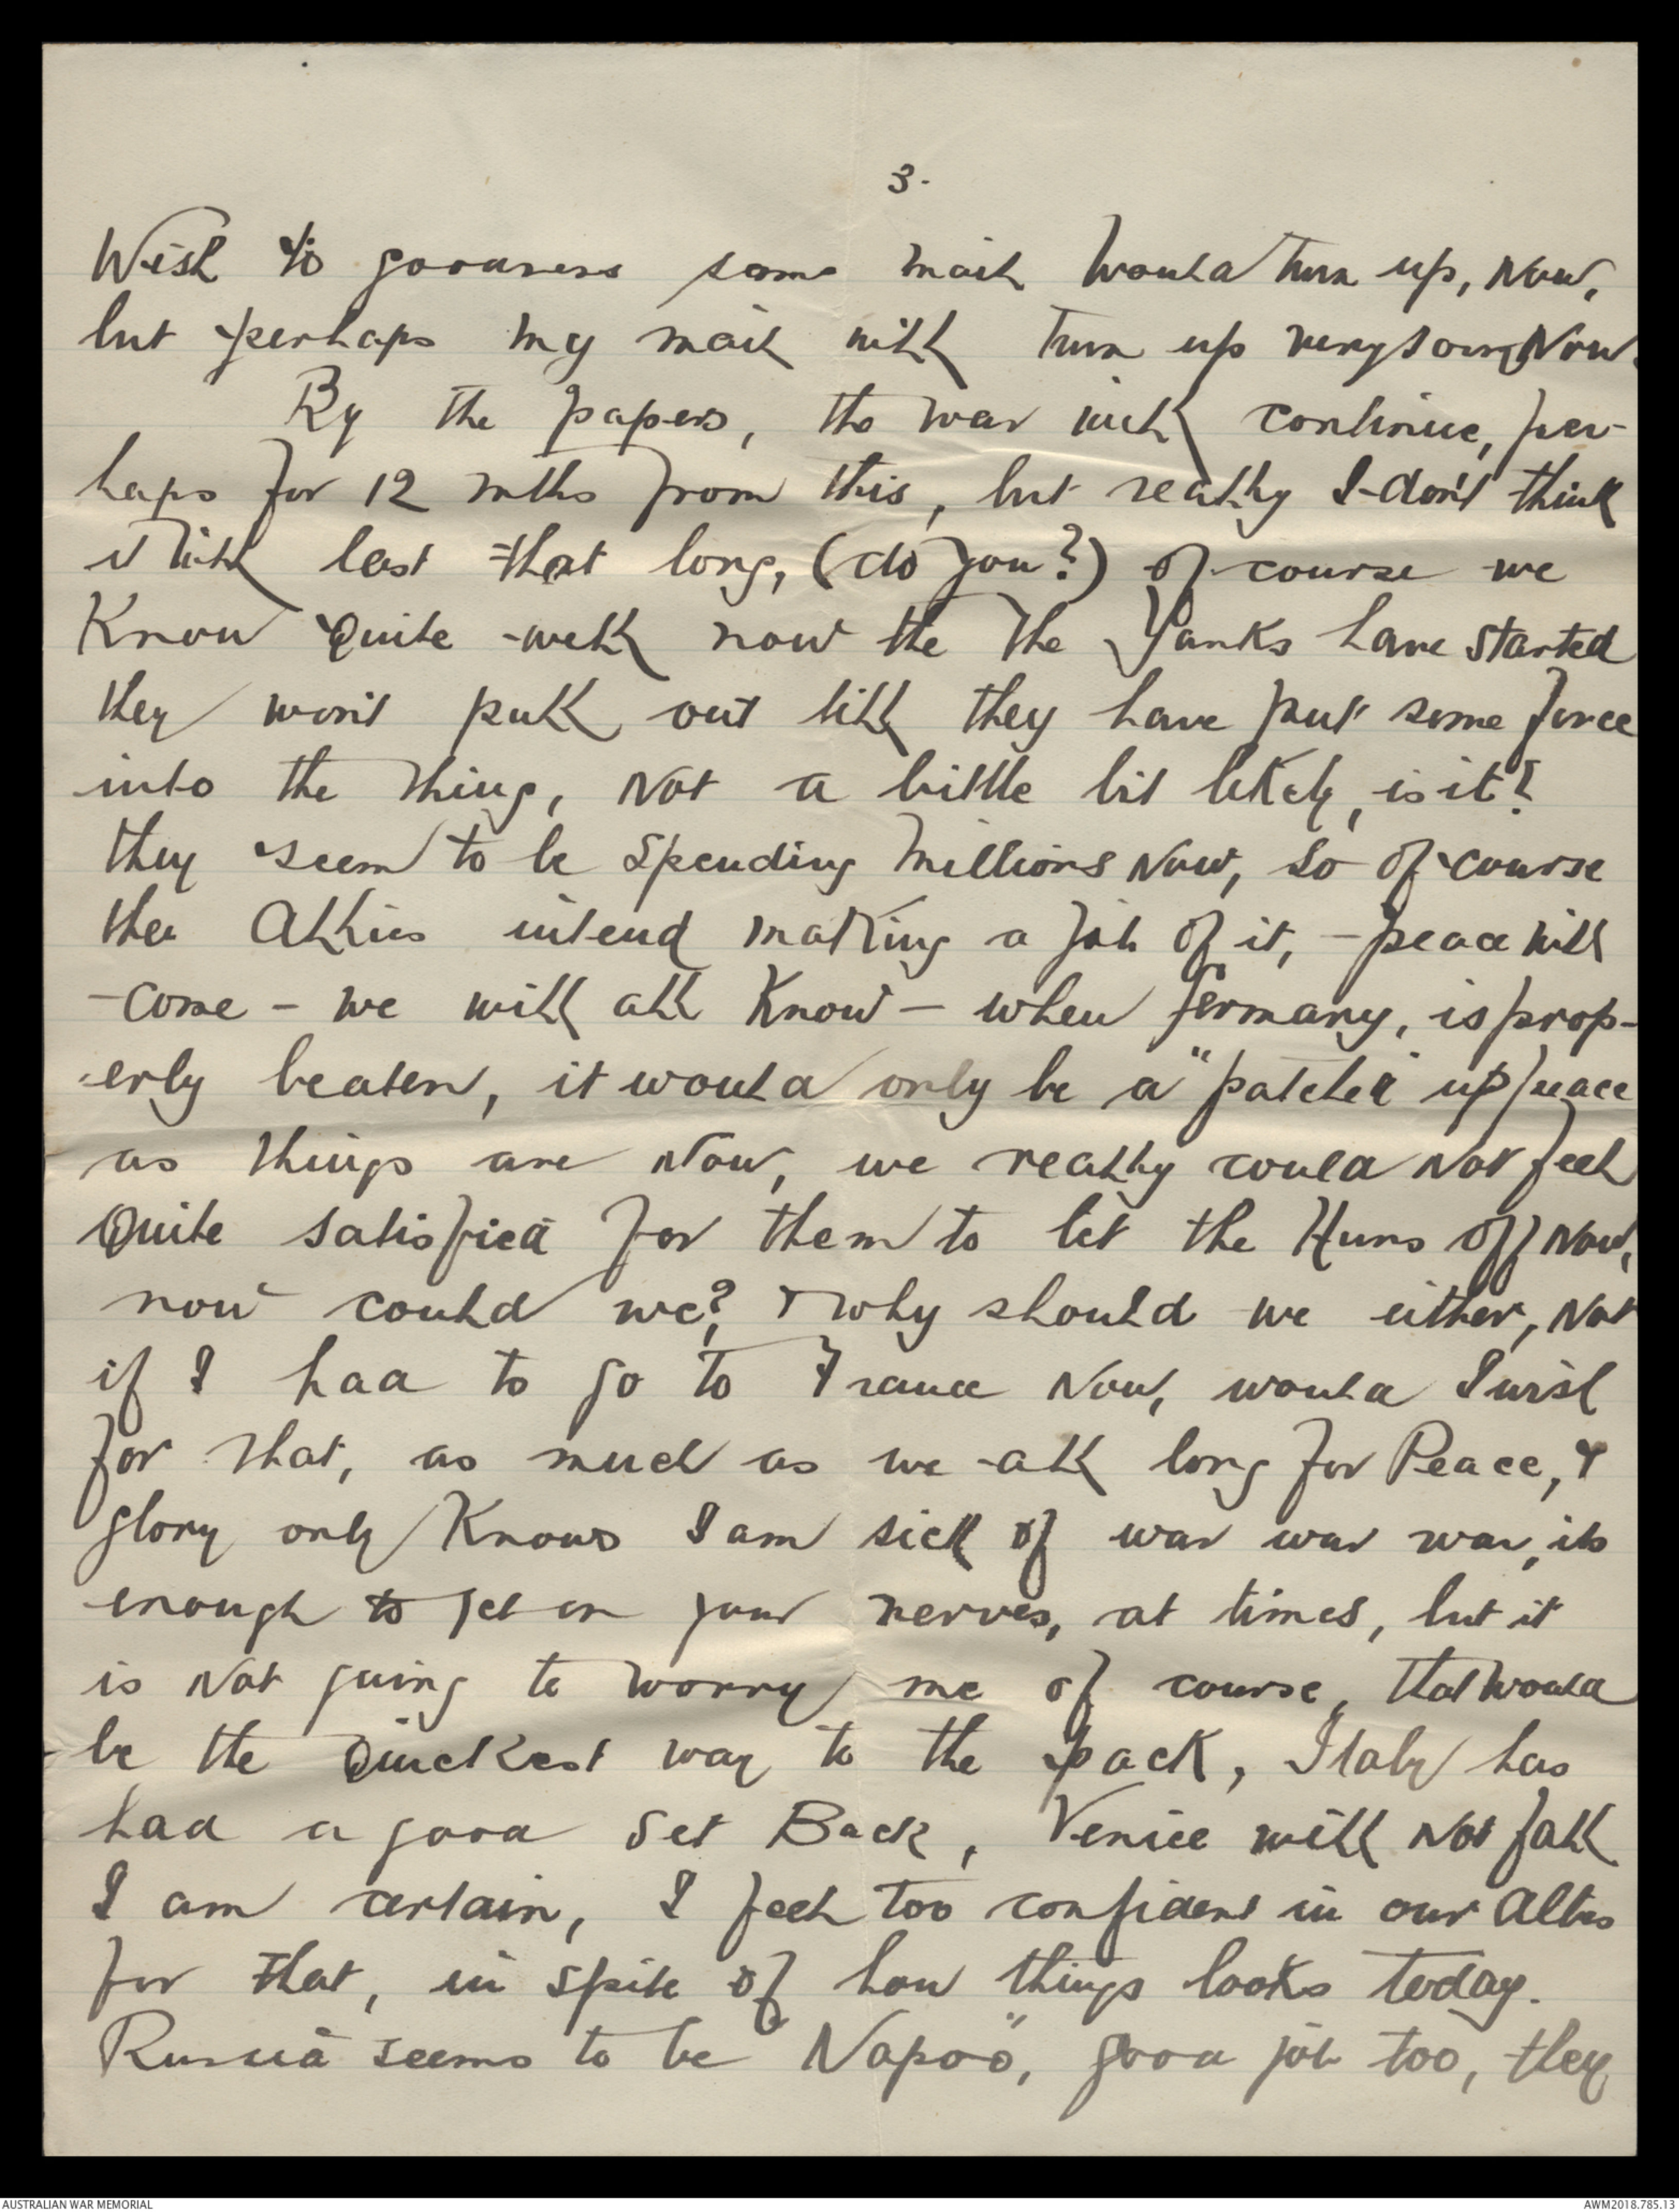 3.
Wish to goodness some mail would turn up, Now,
but perhaps my mail will turn up very soon, Now.
By the papers, the war will continue, per-
haps for 12 mths from this, but really I don't think
it will last that long, (do you?) of course we
Know Quite well now the the Yanks have started
they won't pull out till they have put some force
into the thing, Not a little bit likely, is it?
they seem to be spending millions Now, so of course
the Allies intend making a job of it, - peace will
- come - we will all Know - when Germany, is prop-
erly beaten, it would only be a "patched" up peace
as things are Now, we really could Not feel
Quite satisfied for them to let the Huns off Now,
now could we? & why should we either, Not
if I had to go to France Now, would I wish
for that, as much as we all long for Peace, &
glory only Knows I am sick of war war war, its
enough to get on your nerves, at times, but it
is Not going to worry me of course, that would
be the Quickest way to the pack, Italy has
had a good Set Back, Venice will Not fall
I am certain, I feel too confident in our Allies
for that, in spite of how things looks today.
Russia seems to be "Napoo", good job too, they
AUSTRALIAN WAR MEMORIAL
AWM2018.785.13